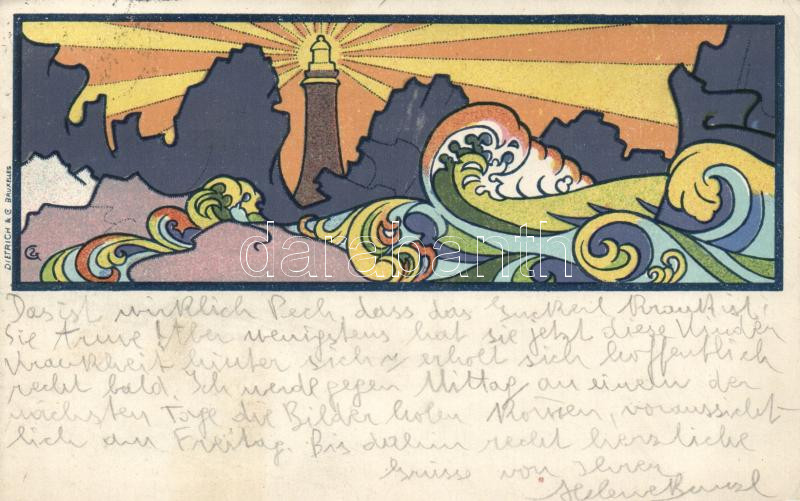 DIETRICH & Co BRUXELLES
CG
darabanth
Das ist wirklich Pech, dass das Zuckerl krank ist;
Sie Arme! Aber wenigstens hat sie jetzt diese Kinder
Krankheit hinter sich & erholt sich hoffentlich
recht bald. Ich werde gegen Mittag an einem der
nächsten Tage die Bilder holen kommen, voraussicht-
lich am Freitag. Bis dahin recht herzliche
Grüsse von Ihrer
Helene